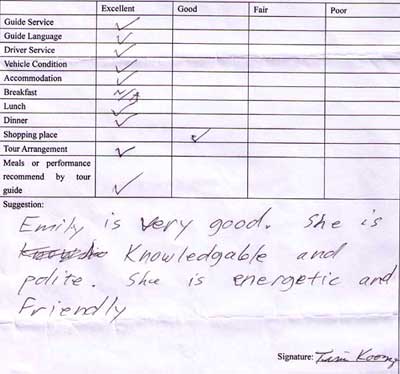 Excellent Good Fair Poor
Guide Service
Guide Language
Driver Service
Vehicle Condition
Accommodation
Breakfast
Lunch
Dinner
Shopping place
Tour Arrangement
Meals or performance
recommend by tour
guide
Suggestion:
Emily is very good. She is
Knowledgable and
polite. She is energetic and
Friendly
Signature: